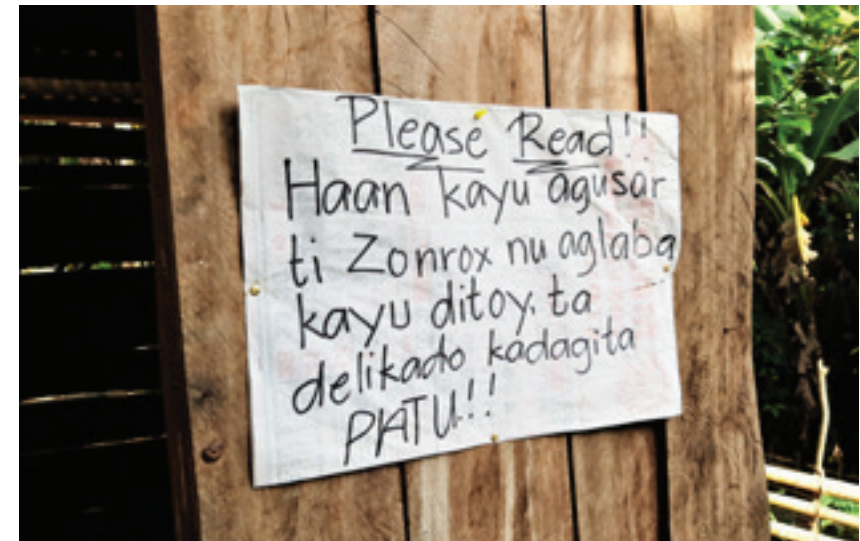 Please Read!!
Haan kayu agusar
ti Zonrox nu aglaba
kayu ditoy, ta
delikado kadagita
PATU!!